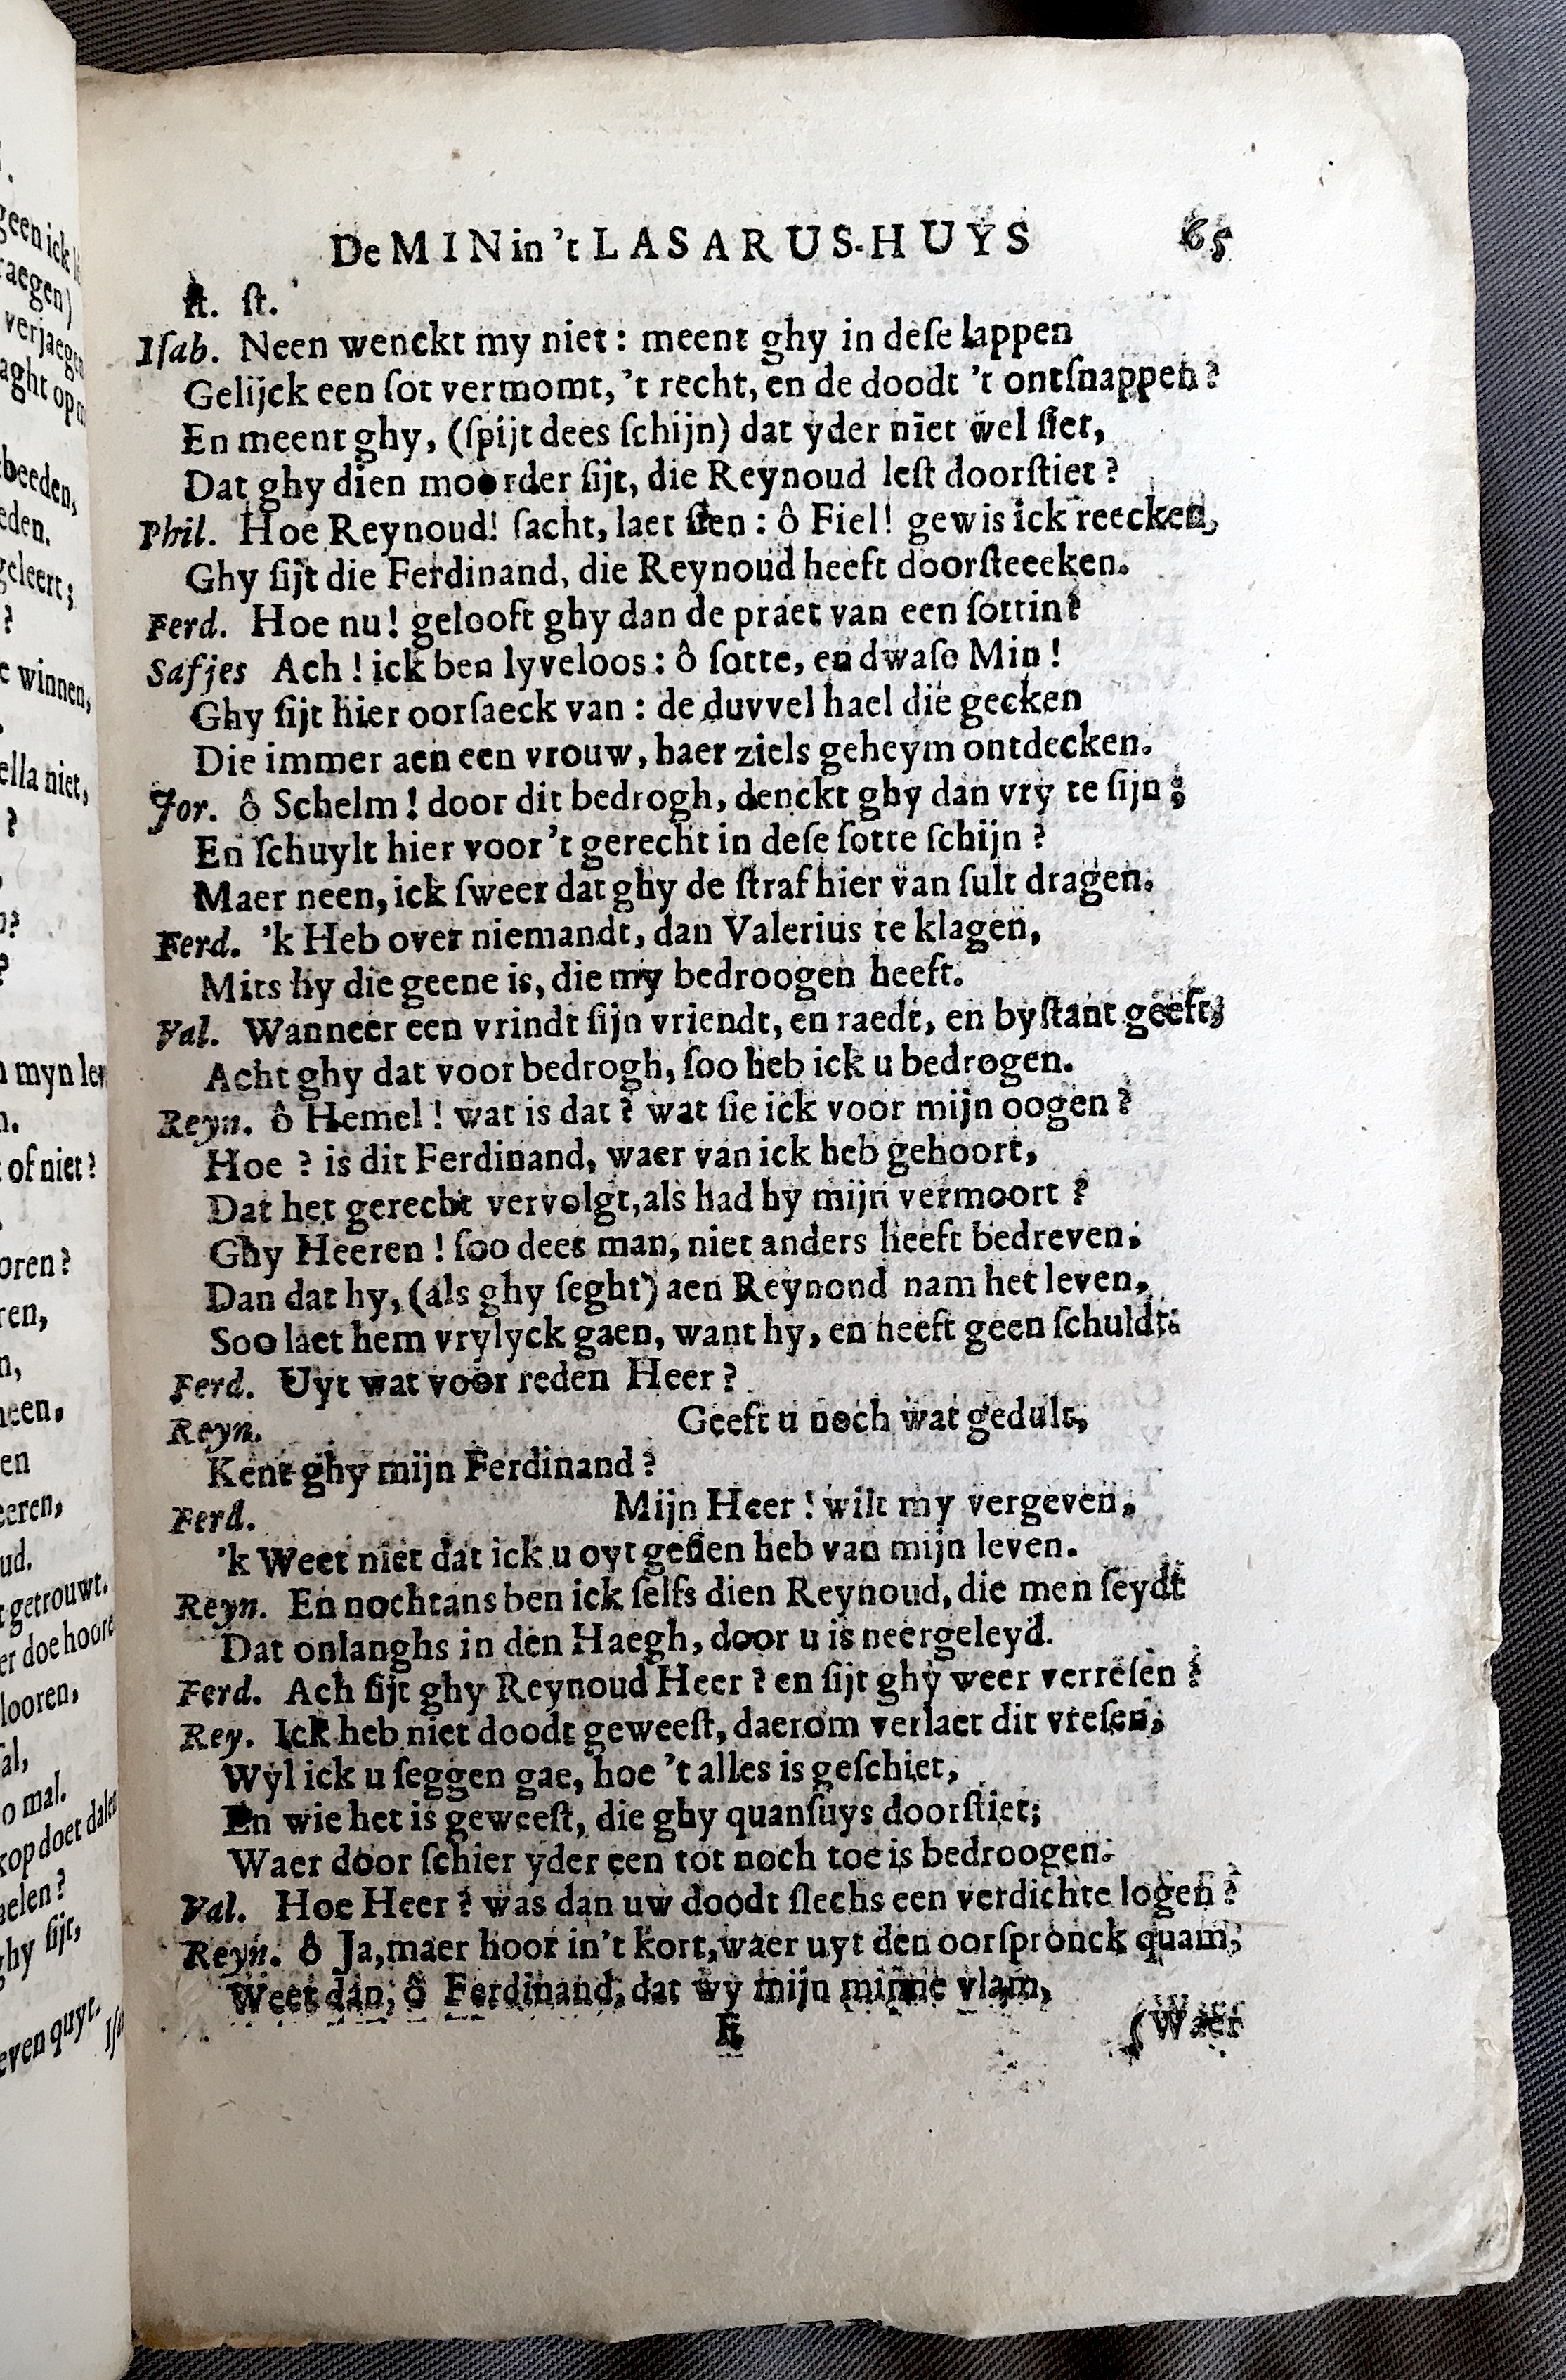 De MIN in 't LASARUS-HUYS 65
ſt. ſt.
Iſab. Neen wenckt my niet: meent ghy in deſe lappen
Gelijck een ſot vermomt, 't recht, en de doodt 't ontſnappen?
En meent ghy, (ſpijt dees ſchijn) dat yder niet wel ſiet,
Dat ghy dien moorder ſijt, die Reynoud leſt doorſtiet?
Phil. Hoe Reynoud! ſacht, laet ſien: ô Fiel! gewis ick reecken,
Ghy ſijt die Ferdinand, die Reynoud heeft doorſteeeken.
Ferd. Hoe nu! gelooft ghy dan de praet van een ſottin?
Safjes Ach! ick ben lyveloos: ô ſotte, en dwaſe Min!
Ghy ſijt hier oorſaeck van: de duvvel hael die gecken
Die immer aen een vrouw, haer ziels geheym ontdecken.
Jor. ô Schelm! door dit bedrogh, denckt ghy dan vry te ſijn;
En ſchuylt hier voor 't gerecht in deſe ſotte ſchijn?
Maer neen, ick ſweer dat ghy de ſtraf hier van ſult dragen.
Ferd. 'k Heb over niemandt, dan Valerius te klagen,
Mits hy die geene is, die my bedroogen heeft.
Val. Wanneer een vrindt ſijn vriendt, en raedt, en byſtant geeft,
Acht ghy dat voor bedrogh, ſoo heb ick u bedrogen.
Reyn. ô Hemel! wat is dat? wat ſie ick voor mijn oogen?
Hoe? is dit Ferdinand, waer van ick heb gehoort,
Dat het gerecht vervolgt, als had hy mijn vermoort?
Ghy Heeren! ſoo dees man, niet anders heeft bedreven;
Dan dat hy, (als ghy ſeght) aen Reynond nam het leven,
Soo laet hem vrylyck gaen, want hy, en heeft geen ſchuldt.
Ferd. Uyt wat voor reden Heer?
Reyn. Geeft u noch wat gedult,
Kent ghy mijn Ferdinand?
Ferd. Mijn Heer! wilt my vergeven,
'k Weet niet dat ick u oyt geſien heb van mijn leven.
Reyn. En nochtans ben ick ſelfs dien Reynoud, die men ſeydt
Dat onlanghs in den Haegh, door u is neergeleyd.
Ferd. Ach ſijt ghy Reynoud Heer? en ſijt ghy weer verreſen?
Rey. Ick heb niet doodt geweeſt, daerom verlaet dit vreſen,
Wyl ick u ſeggen gae, hoe 't alles is geſchiet,
En wie het is geweeſt, die ghy quanſuys doorſtiet;
Waer door ſchier yder een tot noch toe is bedroogen.
Val. Hoe Heer? was dan uw doodt ſlechs een verdichte logen?
Reyn. ô Ja, maer hoor in't kort, waer uyt den oorſpronck quam;
Weet dan, ô Ferdinand, dat wy mijn minne vlam,
E Waer
geen ick
raegen)
verjaegen
aght op
beeden,
eden.
geleert;
?
winnen,
ella niet,
?
myn
of niet?
oren?
ren,
neen,
en
eeren,
ud.
getrouwt.
er doe
looren,
al,
o mal.
kop doet
aelen?
ghy ſijt,
even quyt.